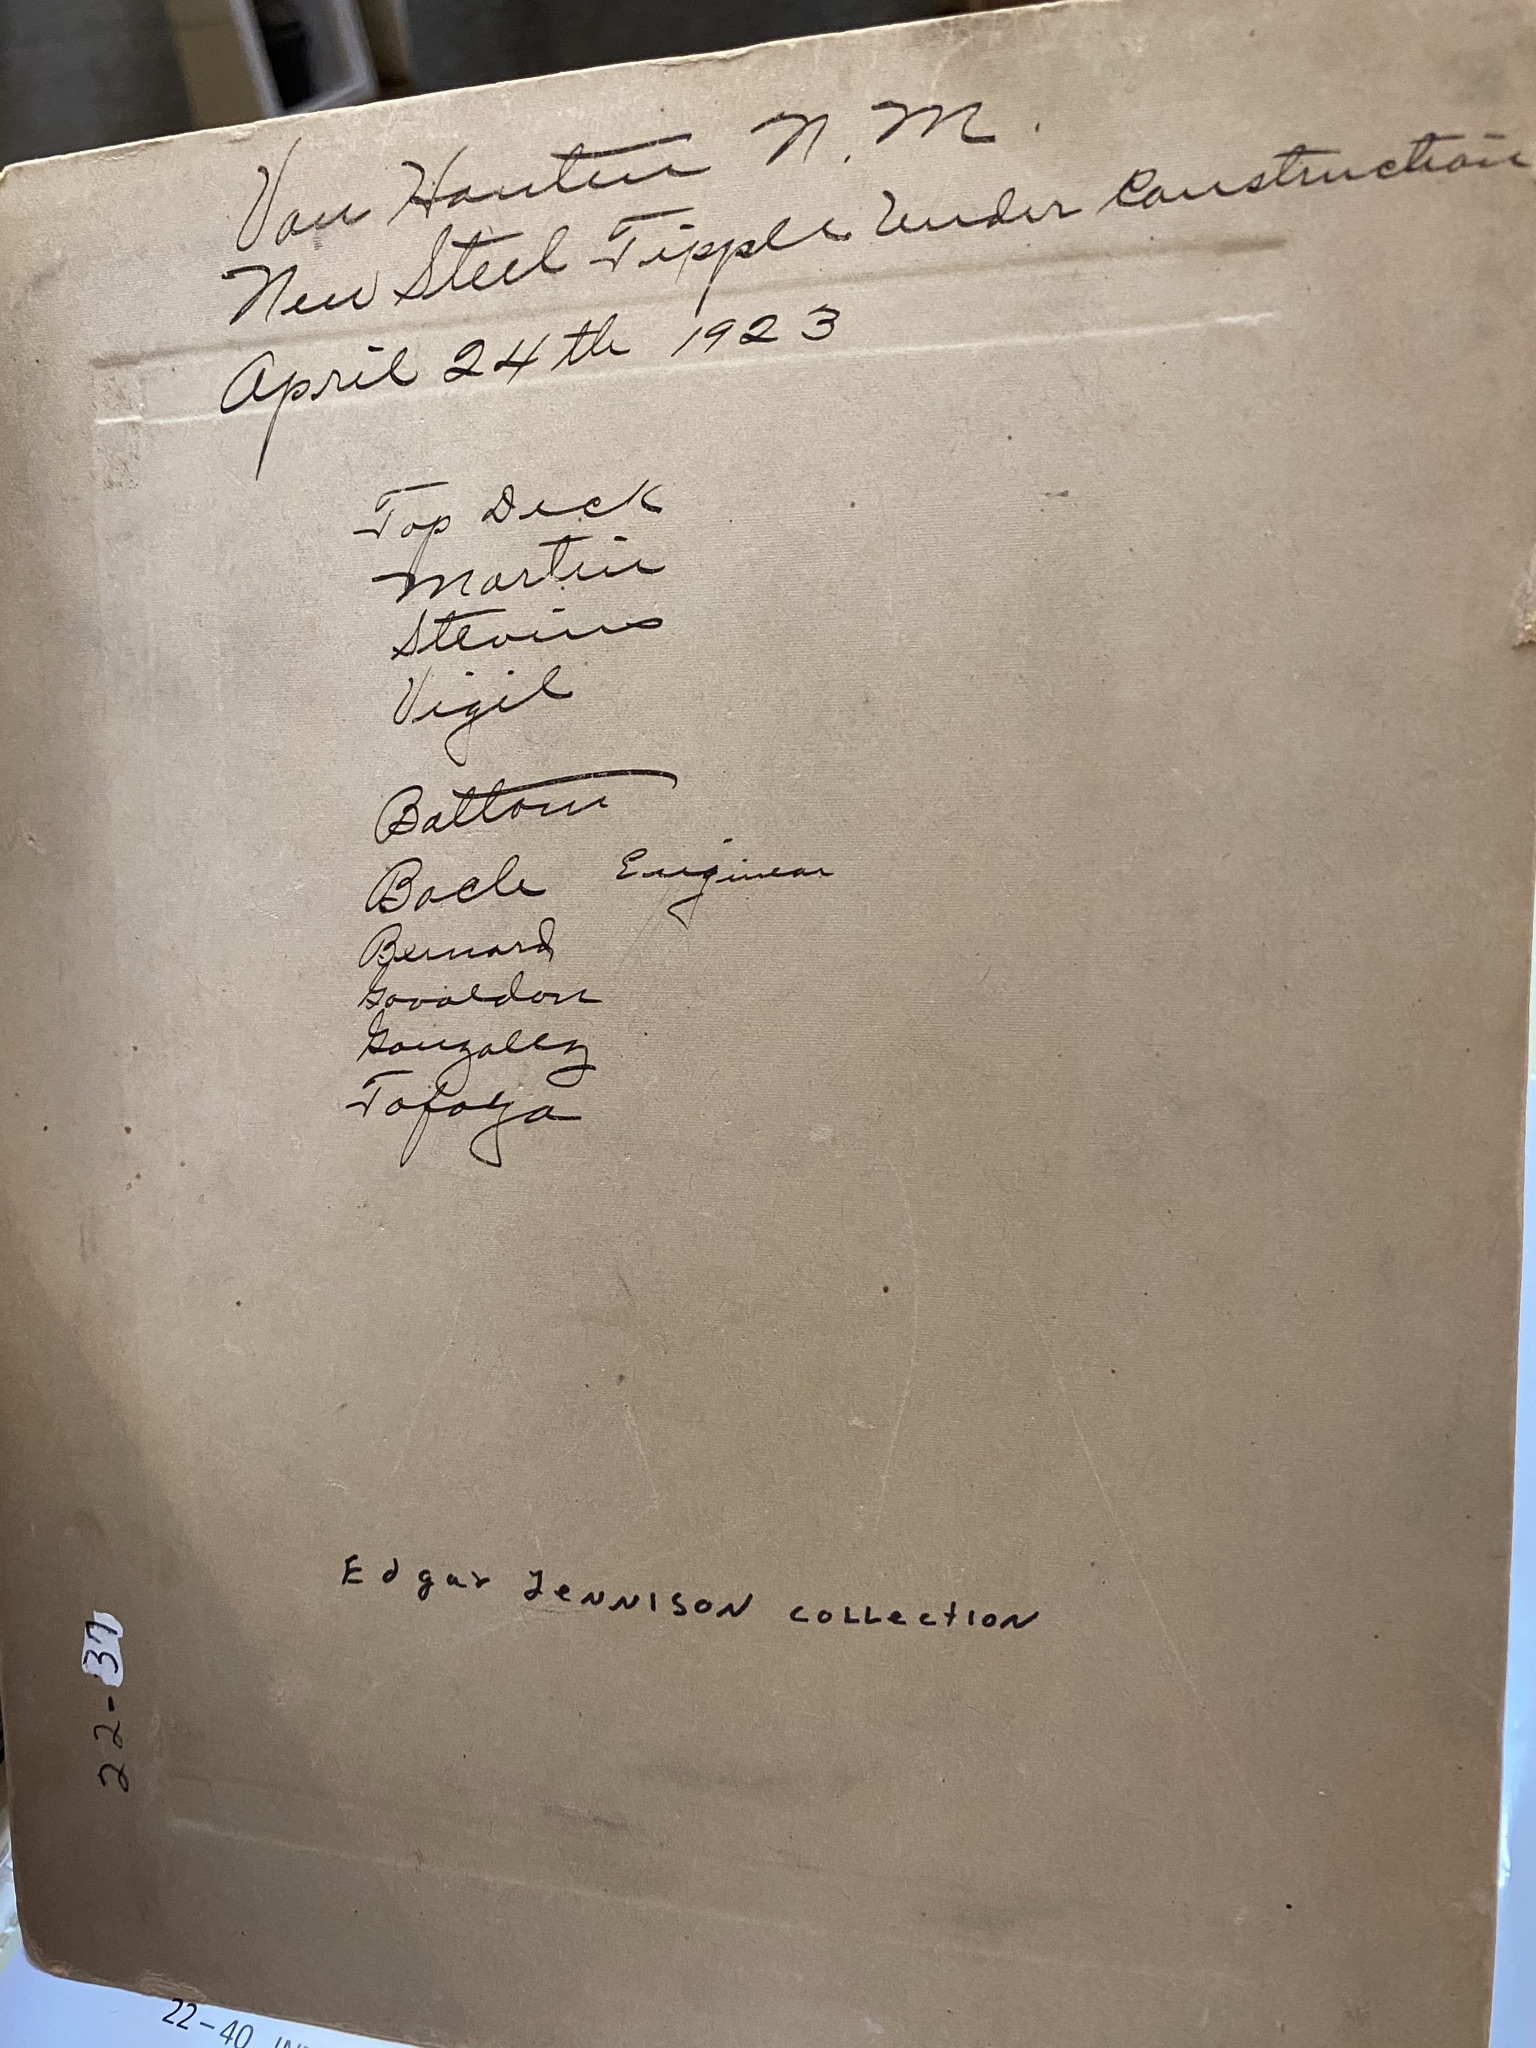 Van Houten N.M.
New Steel Tipple Under Construction
April 24th 1923
Top Deck
Martin
Stevens
Vigil
Bottom
Bacle Enginear
Bernard
Gavaldon
Gonzallez
Tafoya
Edgar Jennison collection
22-37
22-40